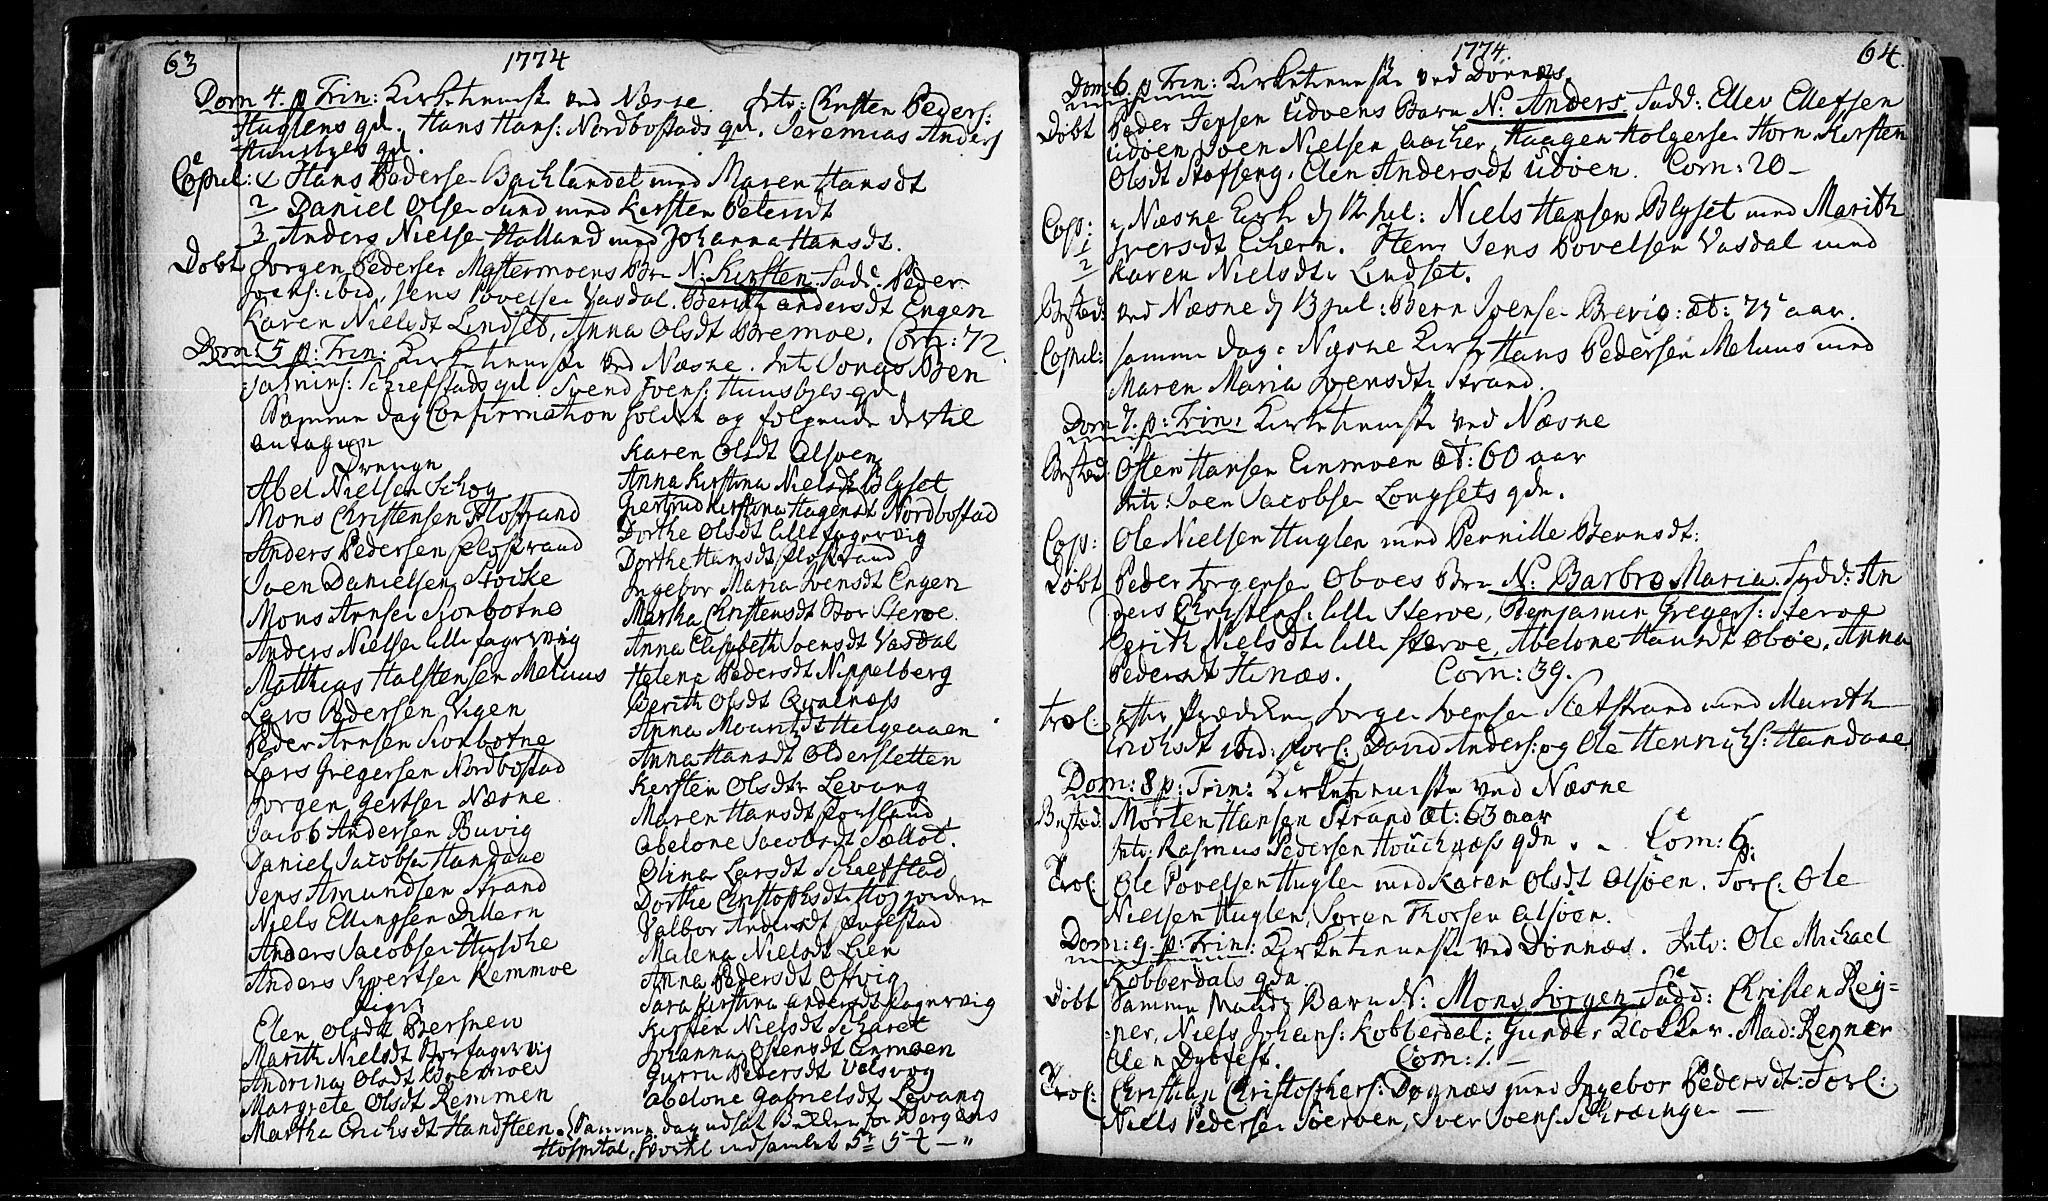 63
1774
Dom 4. p Trin: Kirketienneste ved Næsne. Intr: Christen Peders:
Huglens qd. Hans Hans: Nordbostads qd. Jeremias Anders
Huusbyes qd.
Copul: 1 Hans Pedersen Bachlandet med Maren Hansdt
2 Daniel Olsen Sund med Kirsten Petersdt
3 Anders Nielsen Halland med Johanna Hansdt.
Døbt Jørgen Pedersen Mastermoens Bn N: Kirsten. Fadd: Peder
Joens: ibid, Jens Povelsen Vasdal. Berith andersdt Engen
Karen Nielsdt Lindset, Anna Olsdt Bremoe. Com: 72.
Dom: 5 p: Trin: Kirketienneste ved Næsne. Int: Jonas Ben
jamins: Schiefstads qd. Svend Joens: Huusbyes qd
Samme dag Confirmation holdet og følgende dertil
antagen
Drenge
Abel Nielsen Schog
Mons Christensen Flostrand
Anders Pedersen Flostrand
Sven Danielsen Stocke
Mons Arnsen Sionbotne
Anders Nielsen lille fagervig
Matthias Halstensen Meluus
Lars Pedersen Vigen
Peder Arnsen Sionbotne
Lars Gregersen Nordbostad
Jørgen Gertsen Næsne
Jacob Andersen Buvig
Daniel Jacobsen Handaae
Jens Amundsen Strand
Niels Ellingsen Dillern
Anders Jacobsen Husbye
Anders Sivertsen Remmoe
Piger
Elen Olsdt Bersneu
Marith Nielsdt Storfagervig
Andrina Olsdt Bremoe
Margrete Olsdt Remmen
Martha Erichsdt Handsteen.
Karen Olsdt Alsøen
Anna Kirstina Nielsdt Blyset
Giertrud Kirstina Hagensdt Nordbostad
Dorthe Olsdt lille fagervig
Dorthe Hansdt Flostrand
Ingebor Maria Ivensdt Engen
Martha Christensdt Stor Sterve.
Anna Elisabeth Joensdt Vasdal
Helena Pedersdt Nippelberg
Berith Olsdt Qvalnæss
Anna Mouritzdt Helgeaaen
Anna Hansdt Oldersletten
Kersten Olsdtr Levang
Maren Hansdt Forsland
Abelone Jacobsdt Sellot.
Olina Larsdt Schiefstad
Dorthe Christophsdt
Valbor Andersdt Engestad
Malena Nielsdt Lien
Anna Pedersdt Osvig
Sara Kirstina andersdt Fagervig
Kirsten Nielsdt Scharet
Johanna Ostensdt Einmoen
Gurru Pedersdt Valsvog
Abelone Gabrielsdt Levang
Samme dag udsat Becken for Bergens
Hospital, hvortil indsamlet 5
1774.
64
Dom: 6. p Trin: Kirketienneste ved Dønnæs
Døbt Peder Jensen Udvens Barn N: Anders. Fadd: Ellev Ellefsen
udøen, Joen Nielsen aacher, Haagen Holgersen Horn Kirsten
Olsdt Stafseng. Elen Andersdt udøen. Com: 20 –
Cop: i Næsne Kirke d 12 Jul: Niels Hansen Blyset med Marith
1 Iversdt Echern. Item Jens Povelsen Vasdal med
2 Karen Nielsdtr Lindset.
Bested: ved Næsne d 13 Jul: Bern Ivensen Brevig: æt: 73 aar.
Copul: samme dag i Næsne Kirke Hans Pedersen Meluus med
Maren Maria Ivensdtr Strand.
Dom 7. p: Trin: Kirketienneste ved Næsne
Bested: Osten Hansen Einmoen æt: 60 aar
Intr: Joen Jacobsen Longsets qdn.
Cop: Ole Nielsen Huglen med Pernille Bernsdt:
Døbt Peder Jørgensen Oboes Bn N: Barbro Maria. Fadd: An
ders Christens: lille Sterve, Benjamin Gregers: Sterve
Berith Nielsdtr lille Sterve, Abelone Hansdt Oboe, Anna
Pedersdt Hinæs. Com: 39.
Trol: efter Prædiken Jørgen Ivensen Sletstrand med Marith
Erichsdt ibid: Forl: David Anders: og Ole Henrichs: Handaae
Dom: 8 p: Trin: Kirketienneste ved Næsne
Bested: Morten Hansen Strand æt: 63 aar
Intr: Rasmus Pedersen Houchnæss qdn. Com: 6.
Trol: Ole Povelsen Huglen med Karen Olsdt Alsøen. Forl: Ole
Nielsen Huglen, Søren Thorsen Alsjøen.
Dom: 9. p: Trin: Kirketienneste ved Dønnæs. Intr: Ole Michael
Kobberdals qdn
Døbt Samme Mands Barn N: Mons Jørgen Fadd: Christen Reg-
ner, Niels Johans: Kobberdal, Gunder Klokker. Mad: Regner
Elen Dybfest. Com: 1. –
Trol: Christian Christophers: Dognæs med Ingebor Pedersdt: Forl:
Niels Pedersen Sverven, Iver Ivers: Schravinge –